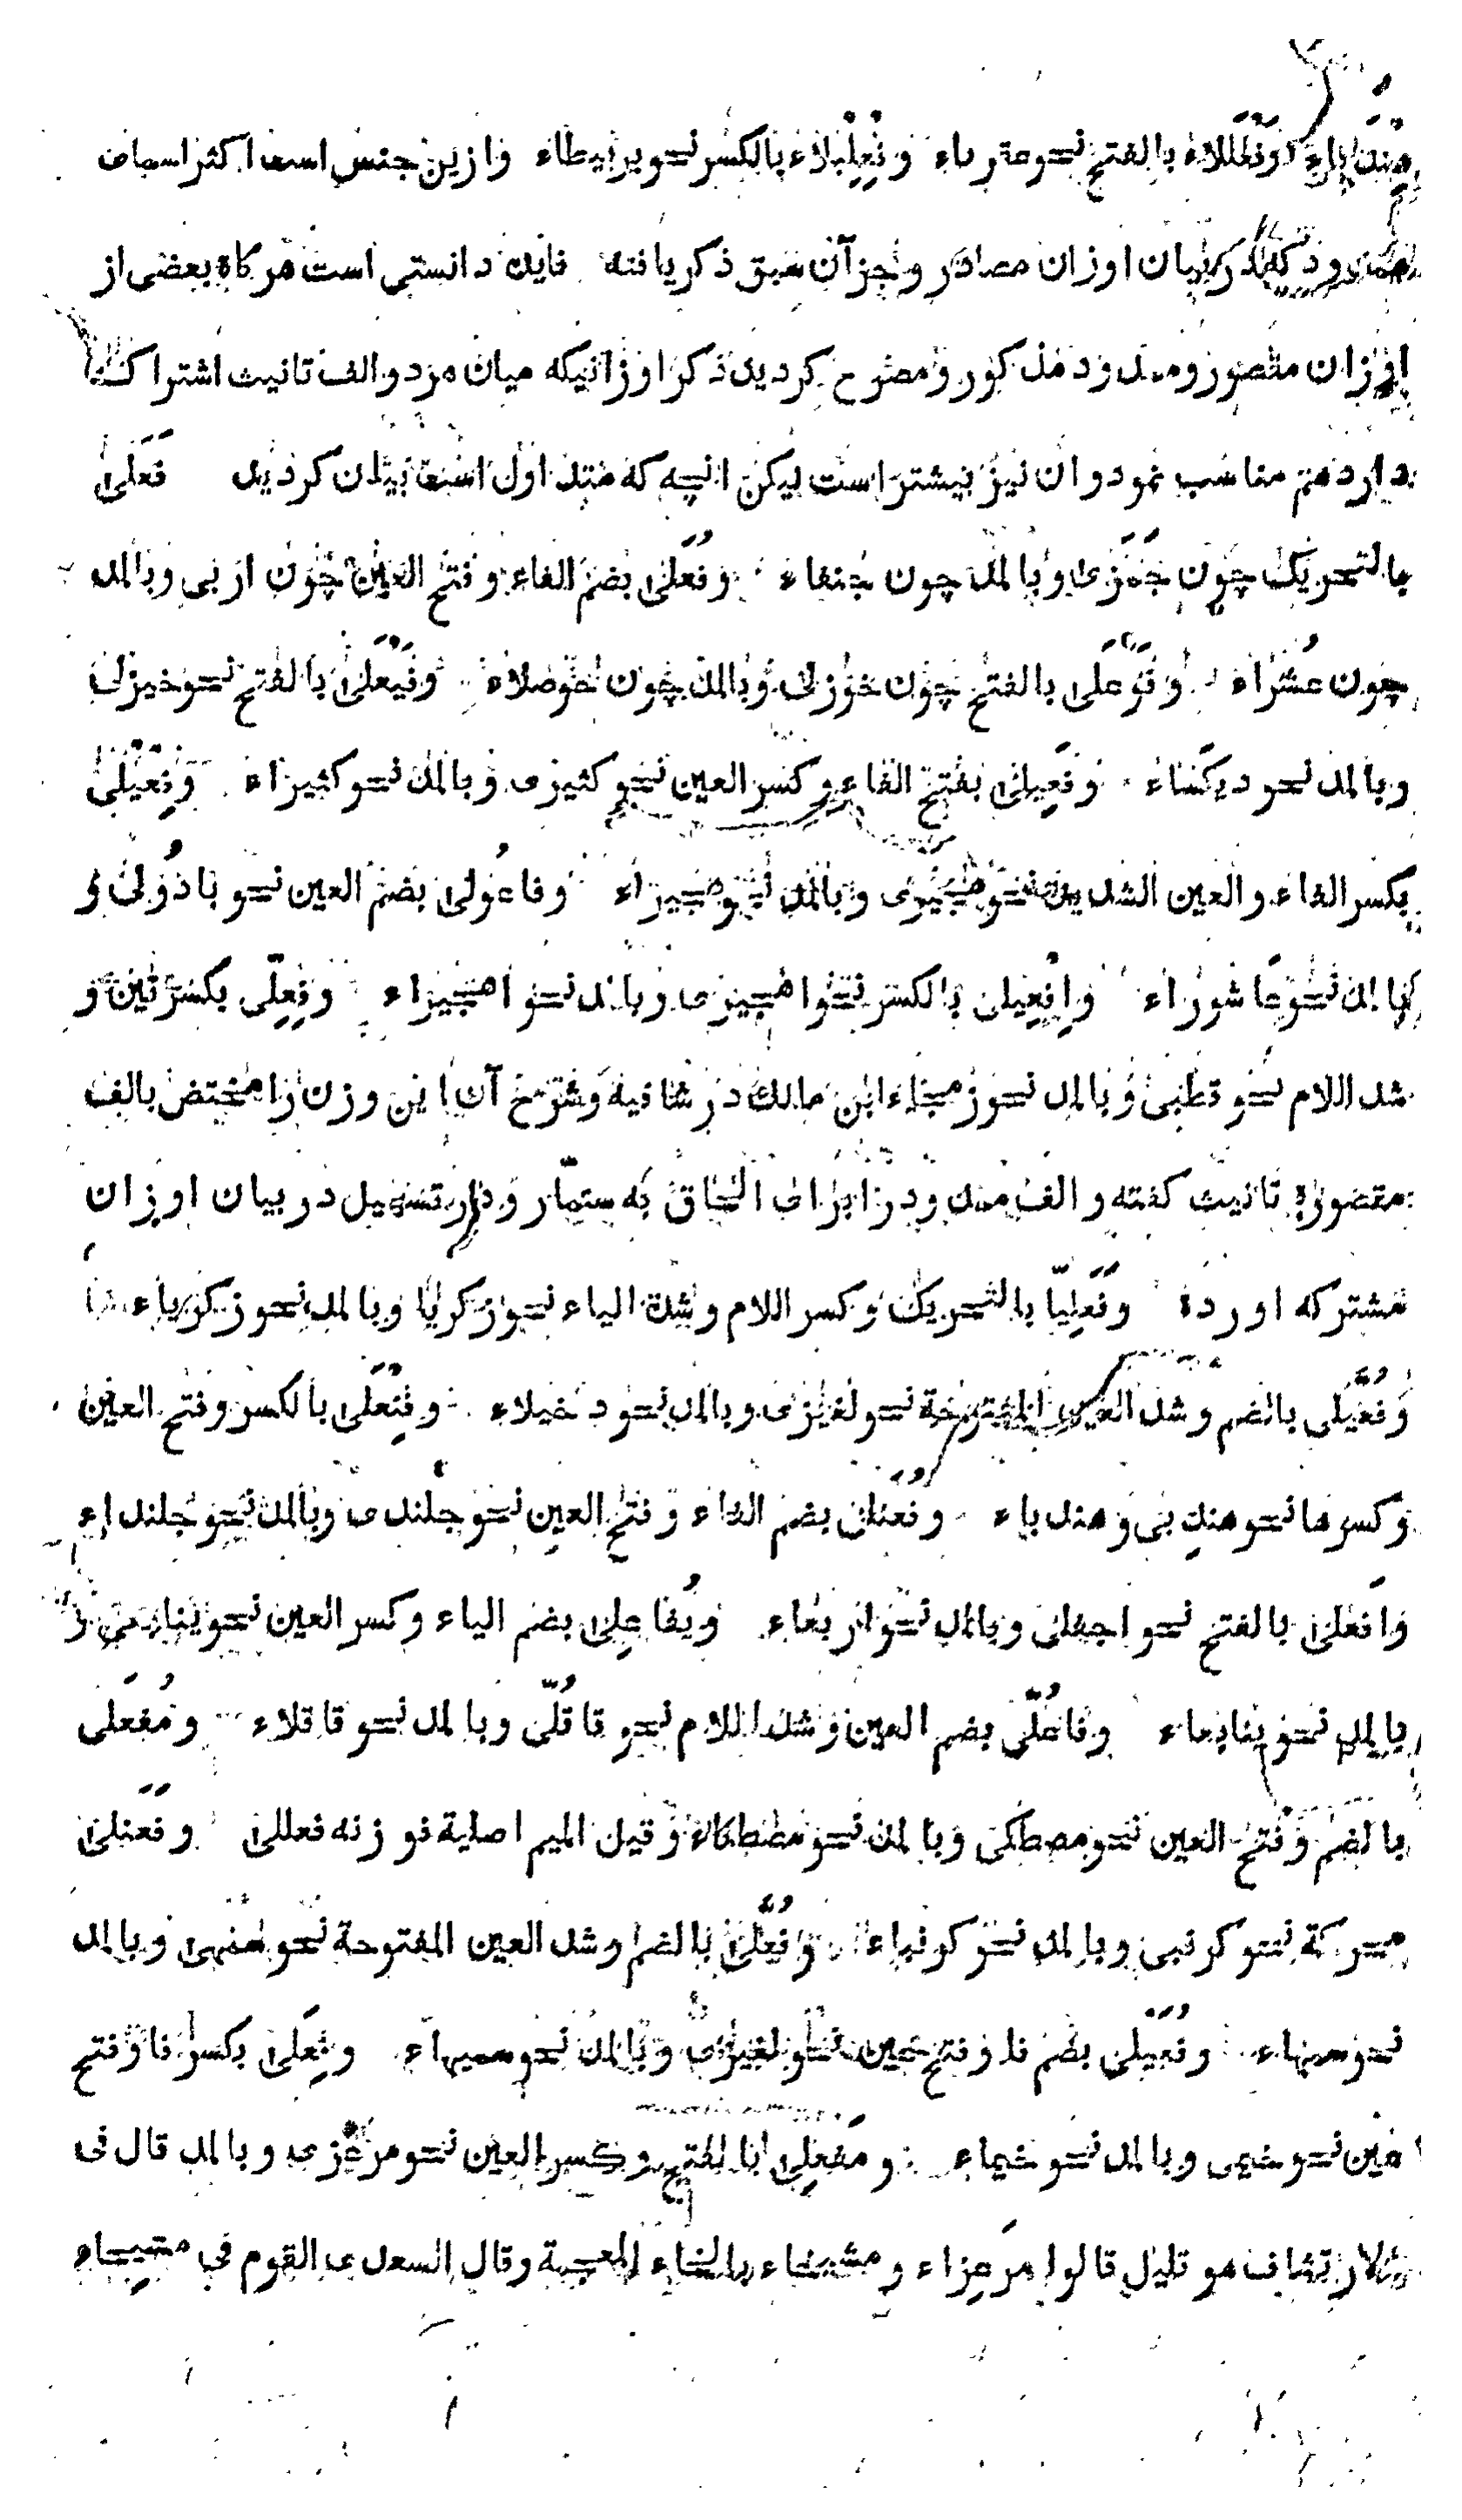 هندباء وفَعْلَلاء بالفتح نحو عقرباء وفِعْلِلاء بالكسر نحو بربيطاء وازين جنس است اكثر اسماى
ممدود كه در بيان اوزان مصادر وجز آن سبق ذكر يافته فايده دانستى است هر كاه بعضى از
اوزان مقصور وممدود مذكور ومصرح كرديد ذكر اوزانيكه ميان مرد والف تانيث اشتراك
دارد هم مناسب نمود وان نيز بيشتر است ليكن انچه كه متداول است بيان كرديد فَعَلَىٰ
بالتحريك چون جَمَزى وبالمد چون جنفاء وفُعَلىٰ بضم الفاء وفتح العين چون اربى وبالمد
چون عُشَراء وفَوْعَلَى بالفتح چون خوزلى وبالمد چون حوصلاء وفَيْعَلىٰ بالفتح نحو خيزلى
وبالمد نحو ديكساء وفَعِيلىٰ بفتح الفاء وكسر العين نحو كثيرى وبالمد نحو كثيراء وفِعِّيْلىٰ
بكسر الفاء والعين الشديد نحو هجيرى وبالمد نحو هجيراء وفاعُولىٰ بضم العين نحو بادُولىٰ و
بالمد نحو عاشوراء وإفْعِيلى بالكسر نحو اهجيرى وبالمد نحو اهجيراء وفِعِلّى بكسرتين و
شد اللام نحو قطبى وبالمد نحو زمجاء ابن مالك در شافيه وشرح آن اين وزن را مختص بالف
مقصورۀ تانيث كفته والف ممدوده را براى الحاق به سنمّار ودر تسهيل در بيان اوزان
مشتركه اورده وفَعَلِيّا بالتحريك وكسر اللام وشدة الياء نحو زكريّا وبالمد نحو زكرياء
وفُعَّيْلى بالضم وشد العين المفتوحة نحو لغيزى وبالمد نحو دخيلاء وفِنْعَلى بالكسر وفتح العين
وكسرها نحو هندِبى وهندباء وفُعَنْلى بضم الفاء وفتح العين نحو جلندى وبالمد نحو جلنداء
وأفعلىٰ بالفتح نحو اجفلى وبالمد نحو اربعاء ويُفاعِلىٰ بضم الياء وكسر العين نحو ينابعى و
بالمد نحو ينابعاء وفاعُلّى بضم العين وشد اللام نحو قاقُلّى وبالمد نحو قاقلاء ومُفْعَلى
بالضم وفتح العين نحو مصطكى وبالمد نحو مصطكاء وقيل الميم اصلية فوزنه فعللى وفَعَنلىٰ
محركة نحو كرنبى وبالمد نحو كرنباء وفُعَّلىٰ بالضم وشد العين المفتوحة نحو سُمّهى وبالمد
نحو سمهاء وفُعَيْلى بضم فا وفتح عين نحو لغيزى وبالمد نحو سميهاء وفِعَلىٰ بكسر فا وفتح
عين نحو خيمى وبالمد نحو خيماء ومَفْعِلىٰ بالفتح وكسر العين نحو مرعزى وبالمد قال فى
الارتشاف هو قليل قالوا مرعزاء ومشيخاء بالخاء المعجمة وقال السعدى القوم فى مشيحاء